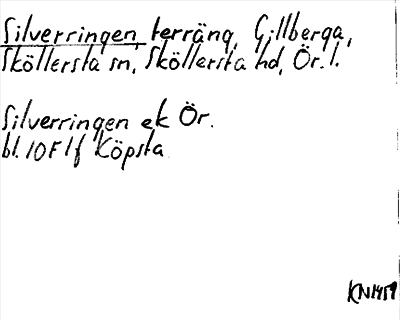 Silverringen, terräng, Gillberga,
Sköllersta sn, Sköllersta hd, Ör. l.
Silverringen ek Ör.
bl. 10F 1f Köpsta